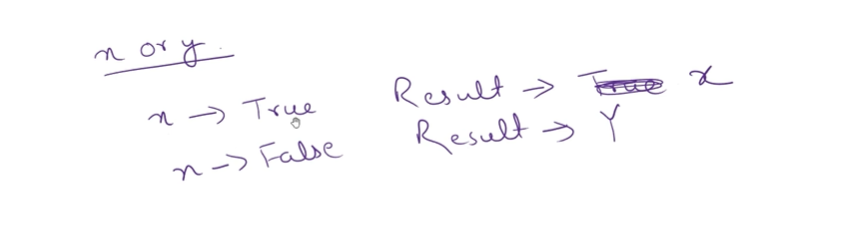 x or y.
x → True Result → x
x → False Result → Y